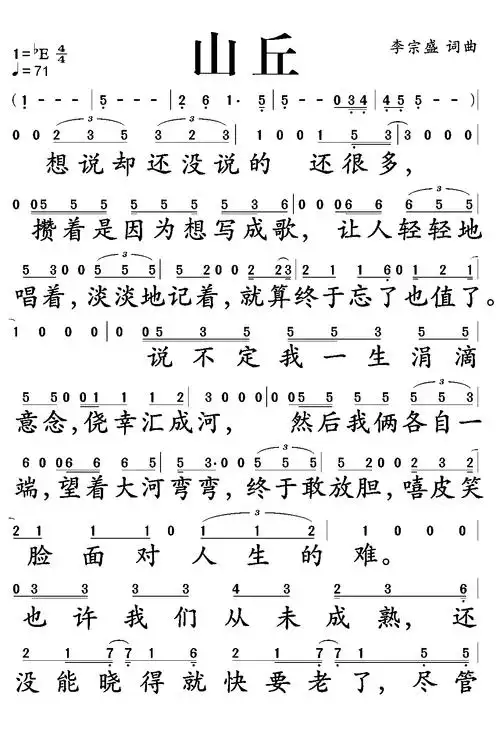 1=♭E 4/4 山丘 李宗盛 词曲
♩=71
(1 - - - | 5 - - - | 2 6 1· 5 | 5 - - 034 | 45 5 - - )|
0 0 2 3 5 3 2 3 | 1 0 0 0 1 5 3 | 3 0 0 0 |
想说却还没说的 还很多,
0 0 05 5 5 5 5 5 3 6 | 0 0 06 6 6 5 5 5 |
攒着是因为想写成歌, 让人轻轻地
5 3005 5 5 | 5 2002 23 | 2 1 1 6 | 600 1 2 1 |
唱着,淡淡地记着,就算终于忘了也值了。
1 0 0 0 | 0 0 05 5 3 5 5 3 5
说不定我一生涓滴
5 5001 1 1 2 | 3 0 0 0 | 0 05 5 5 5 5 5 3
意念,侥幸汇成河, 然后我俩各自一
6 0 06 6 6 5 | 5 3·0 5 5 5 | 5 2002 2 3 | 2 2 3
端,望着大河弯弯,终于敢放胆,嘻皮笑
2 1 1 1 0 1 1 2 | 1 0 0 0 |
脸面对人生的难。
0 3 3 3 3 3 2 3 6
也许我们从未成熟,还
2 1 7 7 1 6 2 1 7 7 1 0 5 5
没能晓得就快要老了,尽管